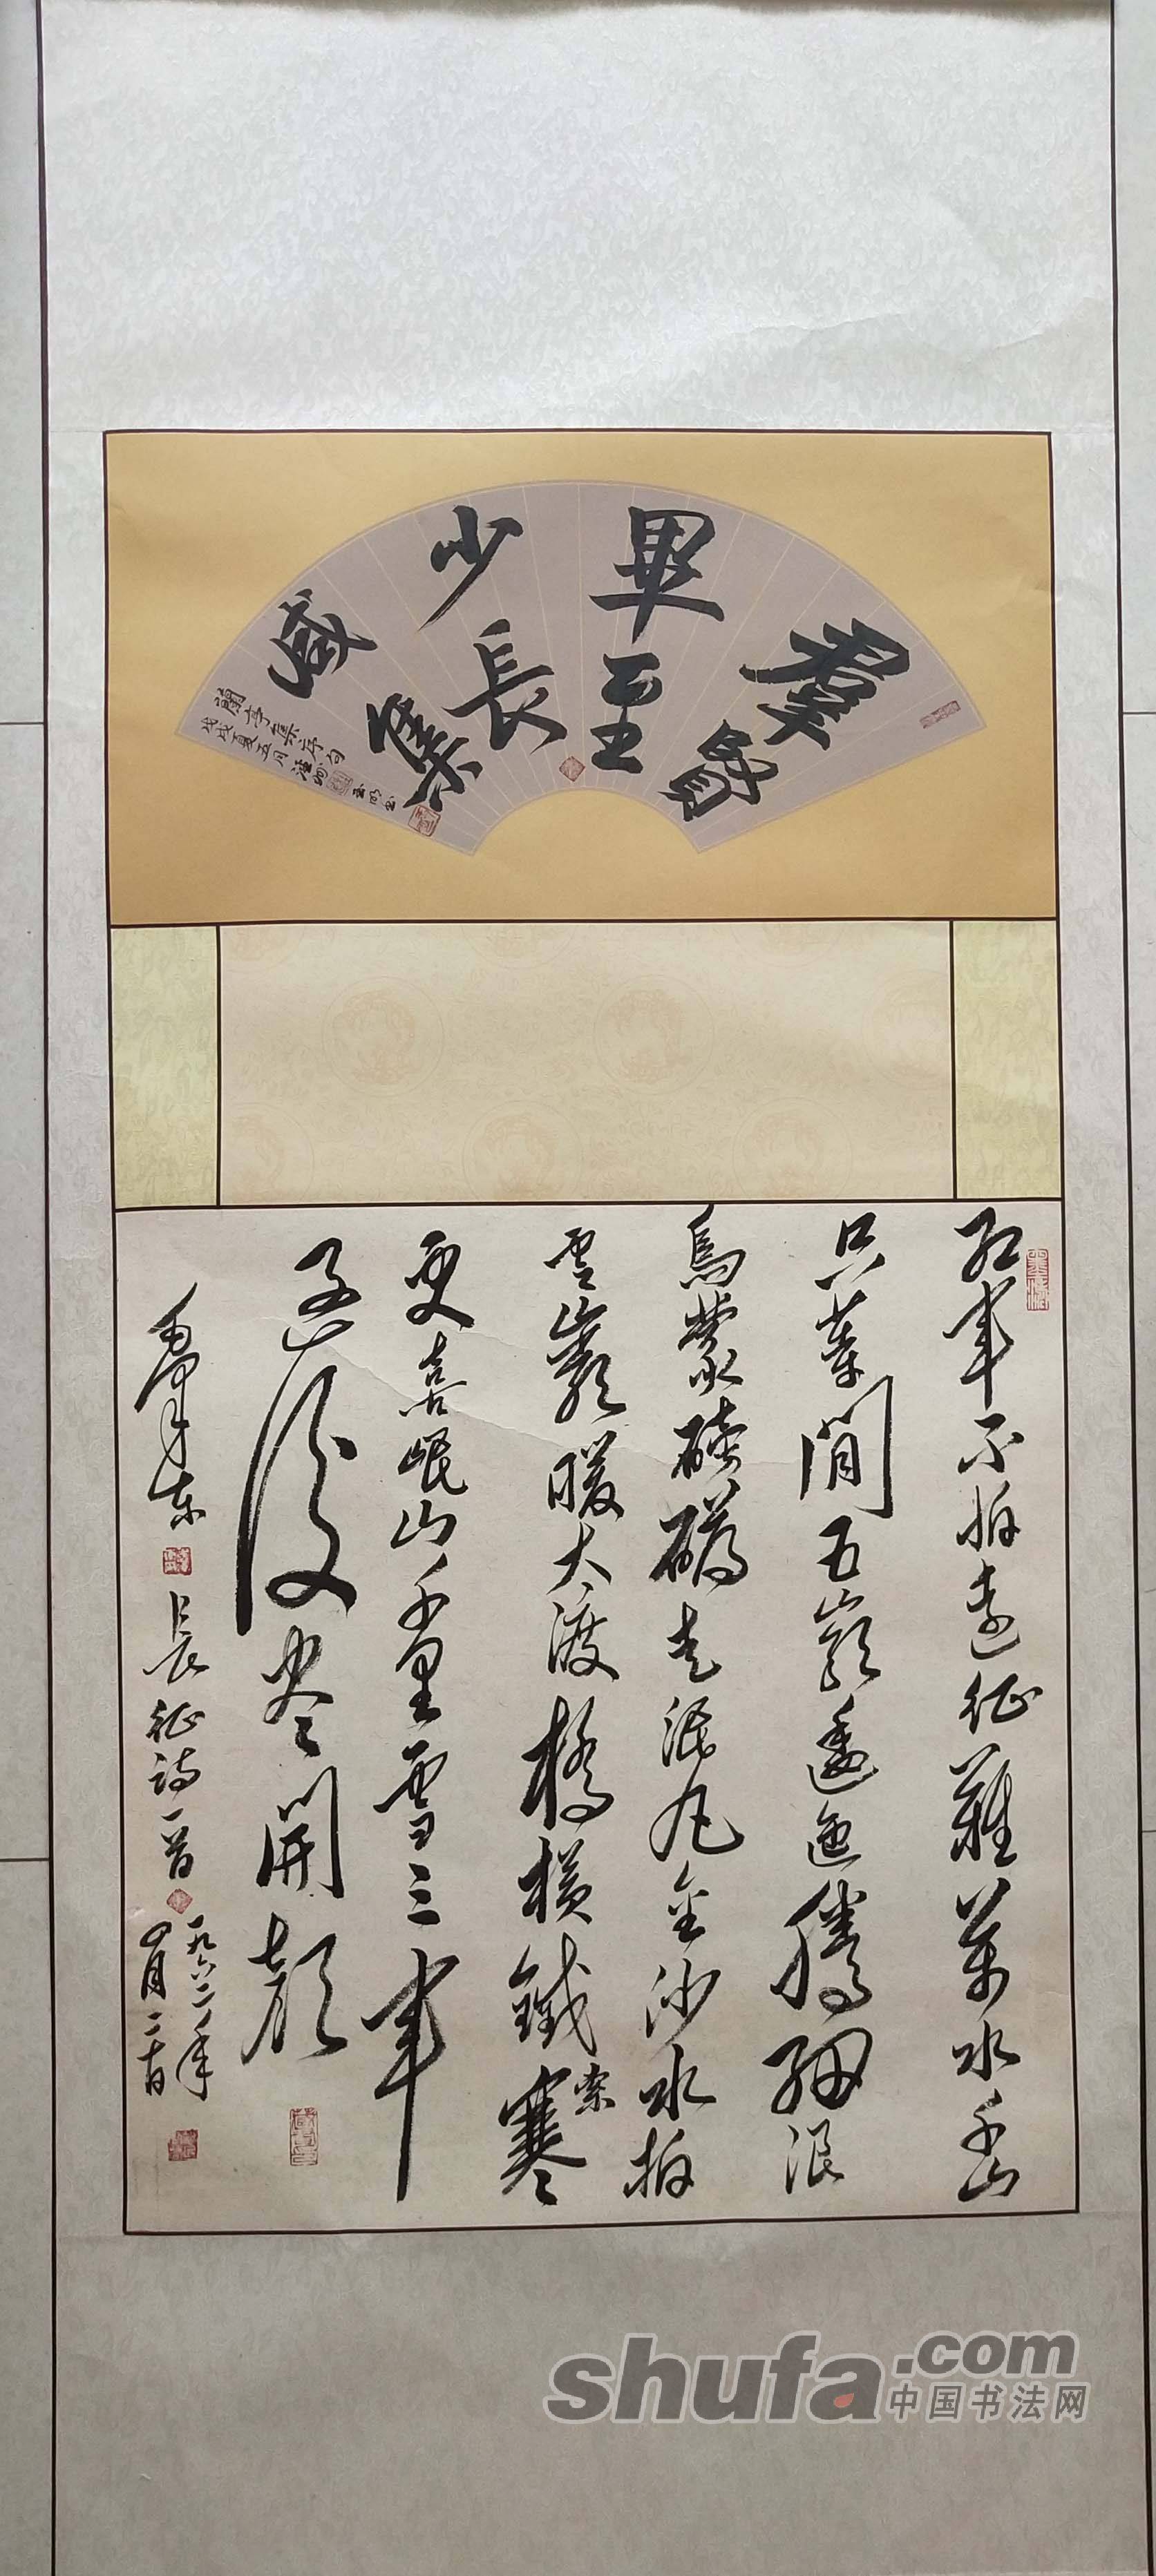 羣賢
畢至
少長
咸集
蘭亭集序句
戊戌夏五月
紅軍不怕遠征難萬水千山
只等閒五嶺逶迤騰細浪
烏蒙磅礴走泥丸金沙水拍
雲巖暖大渡橋橫鐵索寒
更喜岷山千里雪三軍
過後尽開顏
毛澤東
長征詩一首
一九六二年
四月二十日
shufa.com
中国书法网